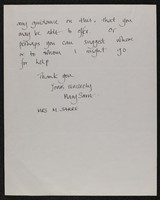 any guidance on this, that you
may be able to offer or
perhaps you can suggest where
or to whom I might go
for help
Thank you
Yours sincerely
Mary
MRS M